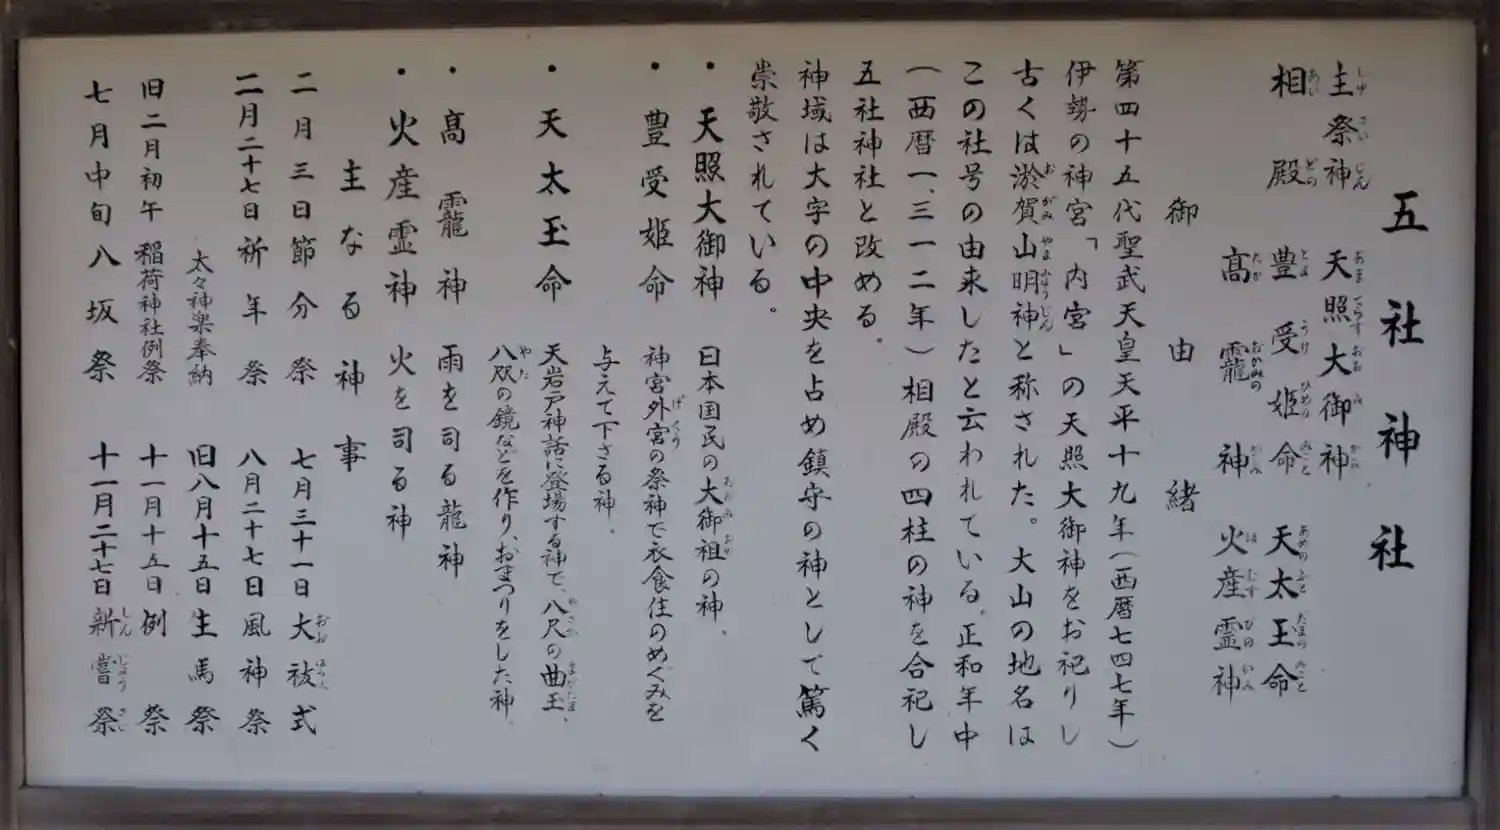 五社神社
主祭神 天照大御神
相殿 豊受姫命 天太玉命
高龗神 火産霊神
御由緒
第四十五代聖武天皇天平十九年(西暦七四七年)
伊勢の神宮「内宮」の天照大御神をお祀りし
古くは淤賀山明神と称された。大山の地名は
この社号の由来したと云われている。正和年中
(西暦一、三一二年)相殿の四柱の神を合祀し
五社神社と改める。
神域は大字の中央を占め鎮守の神として篤く
崇敬されている。
・天照大御神 日本国民の大御祖の神。
・豊受姫命 神宮外宮の祭神で衣食住のめぐみを
与えて下さる神。
・天太玉命 天岩戸神話に登場する神で、八尺の曲玉、
八咫の鏡などを作り、おまつりをした神。
・高龗神 雨を司る龍神
・火産霊神 火を司る神
主なる神事
二月三日節分祭 七月三十一日大祓式
二月二十七日祈年祭 八月二十七日風神祭
太々神楽奉納 旧八月十五日生馬祭
旧二月初午稲荷神社例祭 十一月十五日例祭
七月中旬八坂祭 十一月二十七日新嘗祭